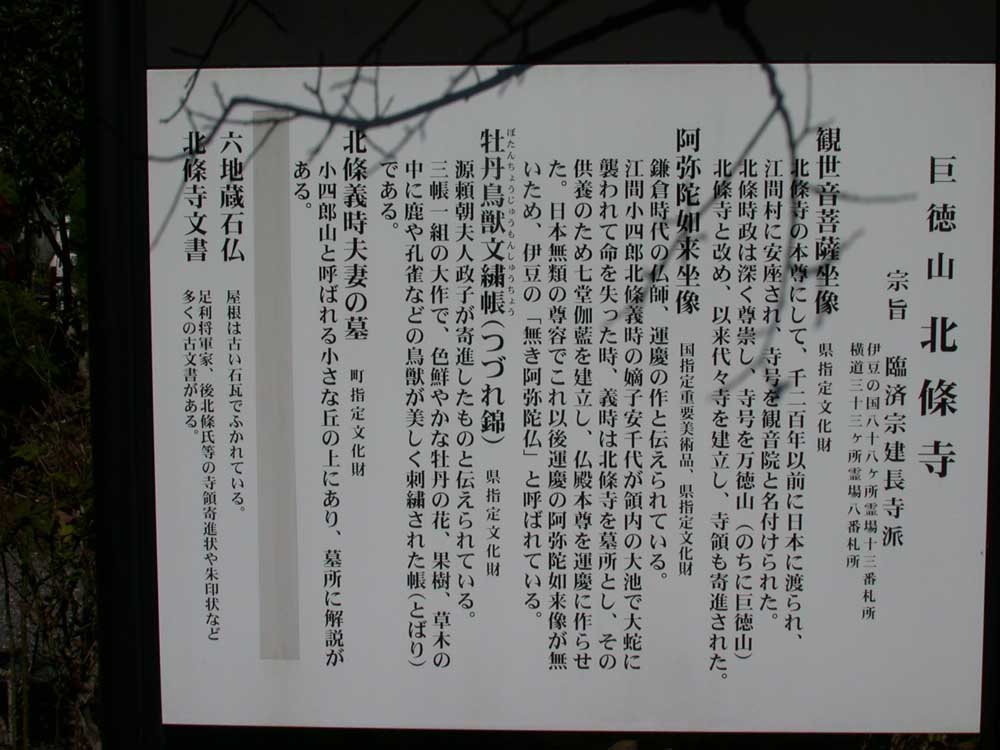 巨徳山 北條寺
宗旨 臨済宗建長寺派
伊豆の国八十八ヶ所霊場十三番札所
横道三十三ヶ所霊場八番札所
観世音菩薩坐像 県指定文化財
北條寺の本尊にして、千二百年以前に日本に渡られ、
江間村に安座され、寺号を観音院と名付けられた。
北條時政は深く尊崇し、寺号を万徳山（のちに巨徳山）
北條寺と改め、以来代々寺を建立し、寺領も寄進された。
阿弥陀如来坐像 国指定重要美術品、県指定文化財
鎌倉時代の仏師、運慶の作と伝えられている。
江間小四郎北條義時の嫡子安千代が領内の大池で大蛇に
襲われて命を失った時、義時は北條寺を墓所とし、その
供養のため七堂伽藍を建立し、仏殿本尊を運慶に作らせ
た。日本無類の尊容でこれ以後運慶の阿弥陀如来像が無
いため、伊豆の「無き阿弥陀仏」と呼ばれている。
ぼたんちょうじゅうもんしゅうちょう
牡丹鳥獣文繍帳（つづれ錦） 県指定文化財
源頼朝夫人政子が寄進したものと伝えられている。
三帳一組の大作で、色鮮やかな牡丹の花、果樹、草木の
中に鹿や孔雀などの鳥獣が美しく刺繍された帳（とばり）
である。
北條義時夫妻の墓 町指定文化財
小四郎山と呼ばれる小さな丘の上にあり、墓所に解説が
ある。
六地蔵石仏 屋根は古い石瓦でふかれている。
北條寺文書 足利将軍家、後北條氏等の寺領寄進状や朱印状など
多くの古文書がある。